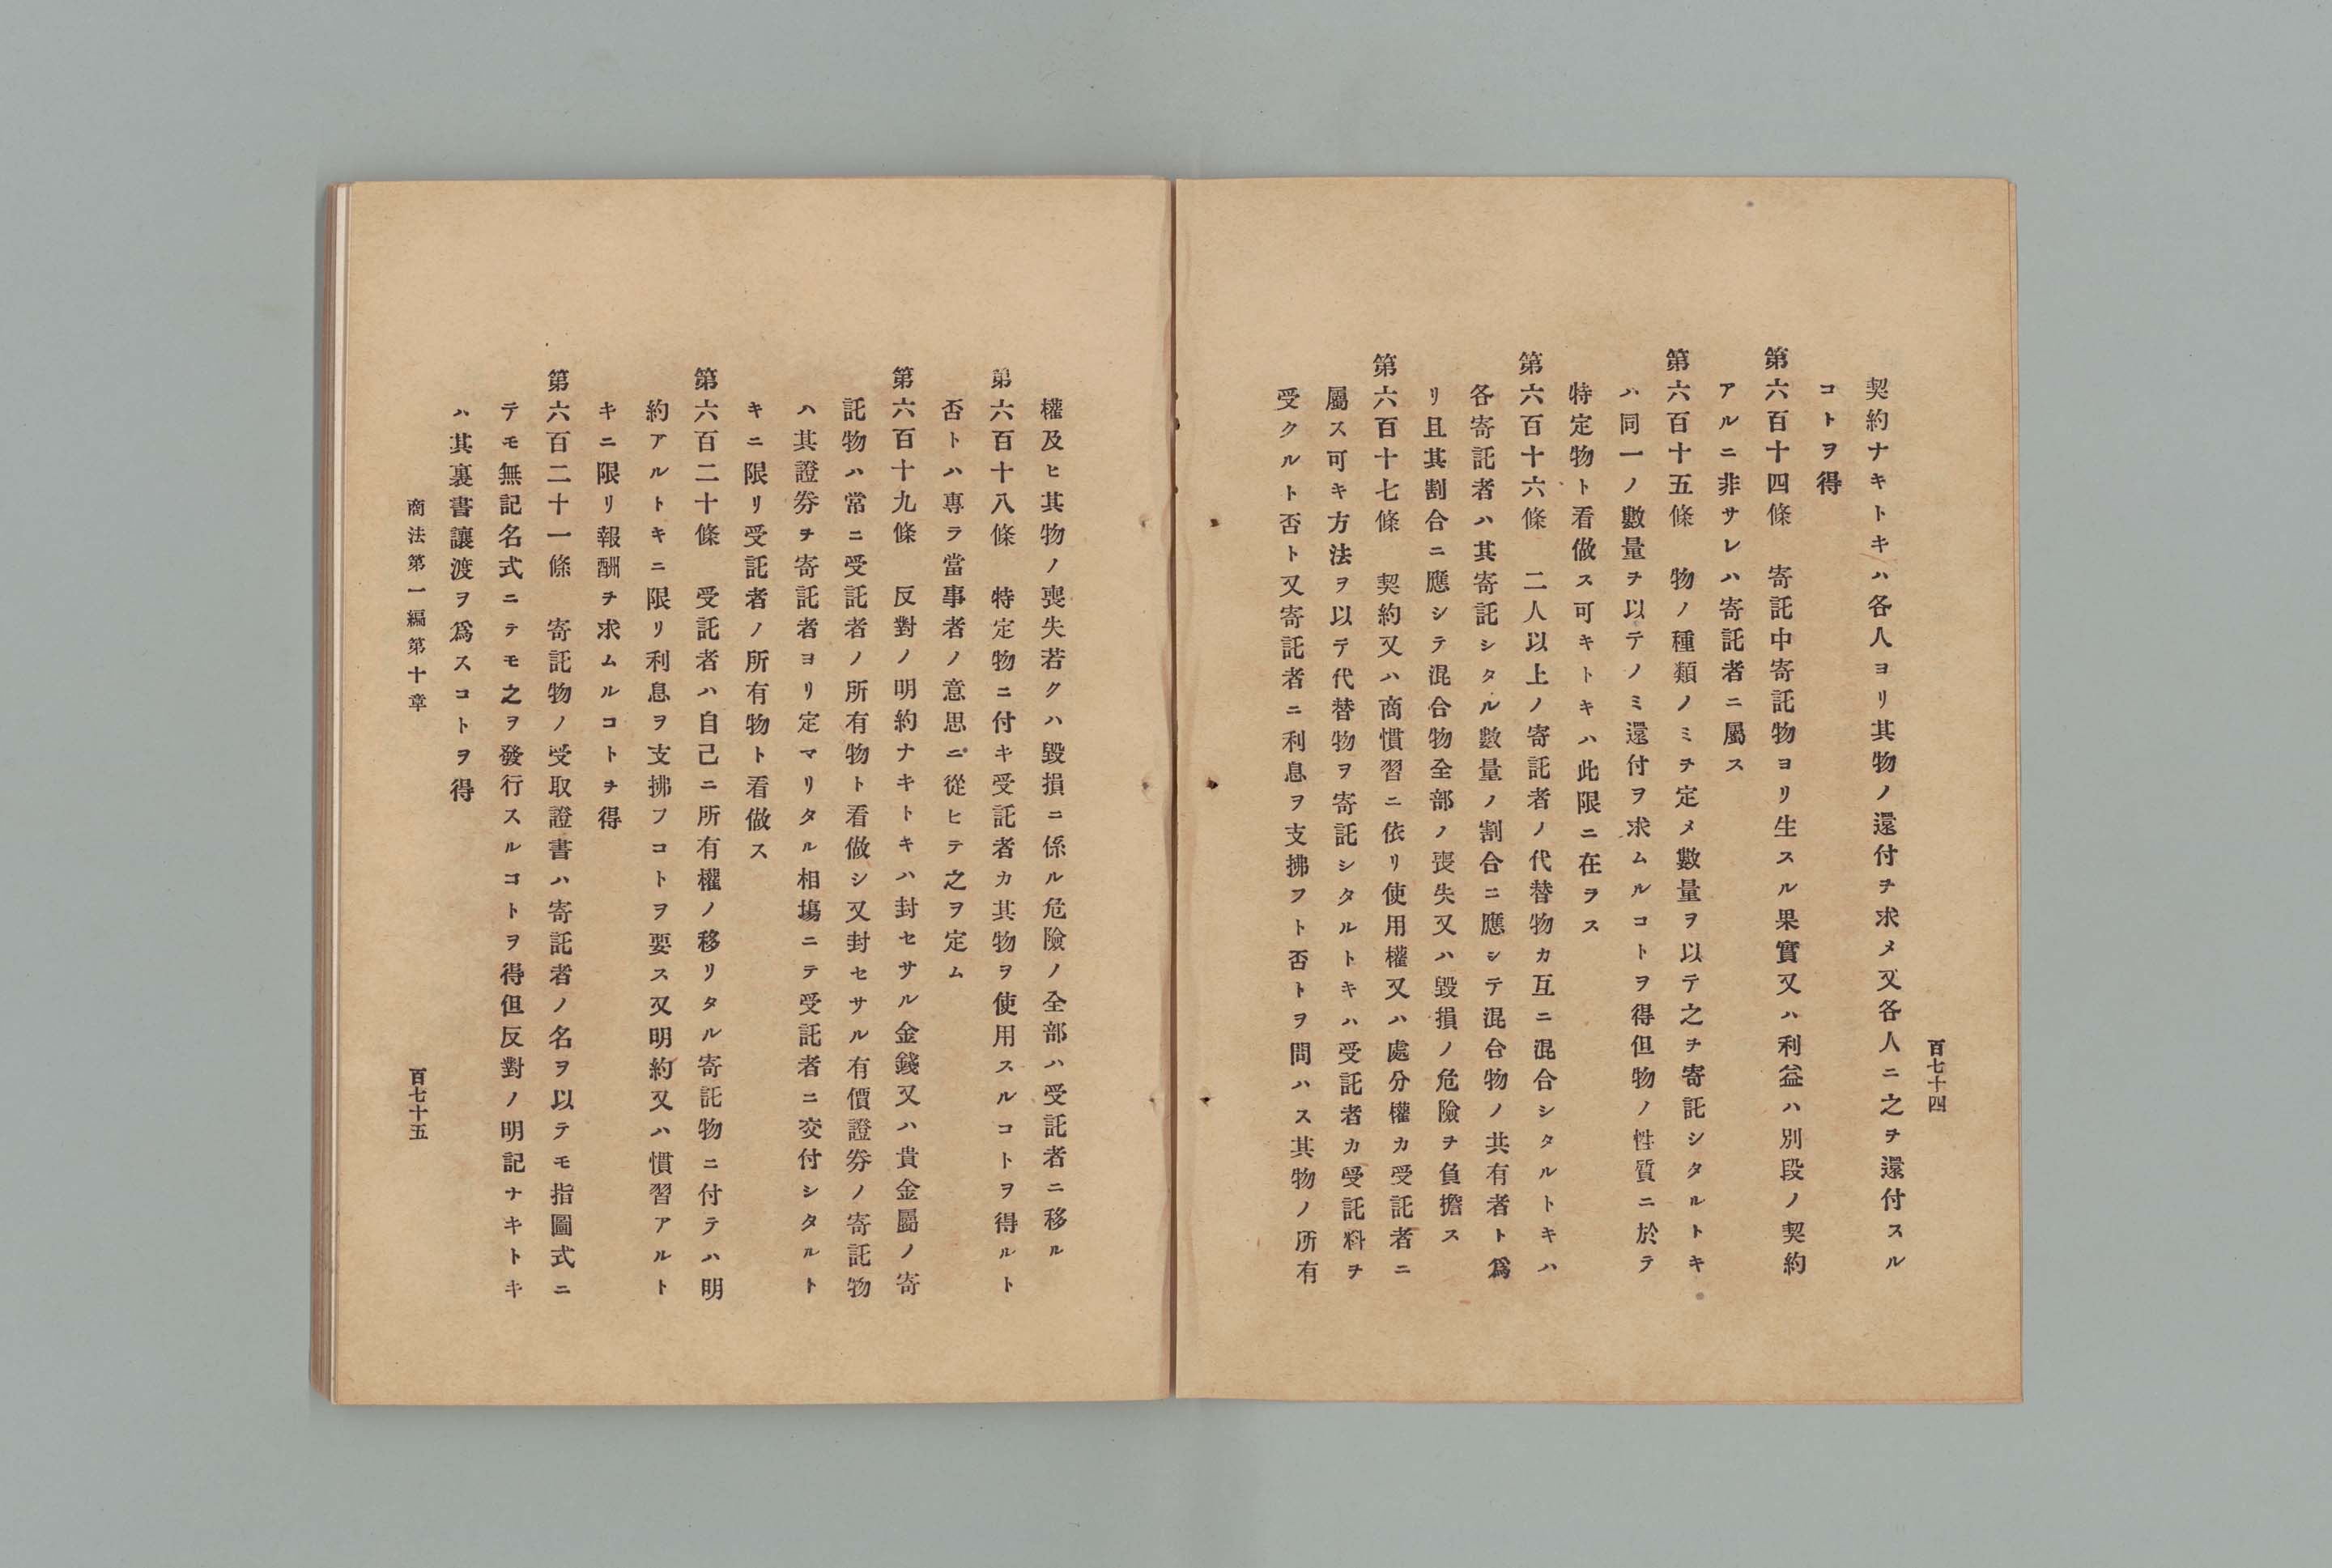 百七十四
契約ナキトキハ各人ヨリ其物ノ還付ヲ求メ又各人ニ之ヲ還付スル
コトヲ得
第六百十四條　寄託中寄託物ヨリ生スル果實又ハ利益ハ別段ノ契約
アルニ非サレハ寄託者ニ屬ス
第六百十五條　物ノ種類ノミヲ定メ數量ヲ以テ之ヲ寄託シタルトキ
ハ同一ノ數量ヲ以テノミ還付ヲ求ムルコトヲ得但物ノ性質ニ於テ
特定物ト看做ス可キトキハ此限ニ在ヲス
第六百十六條　二人以上ノ寄託者ノ代替物カ互ニ混合シタルトキハ
各寄託者ハ其寄託シタル數量ノ割合ニ應シテ混合物ノ共有者ト爲
リ且其割合ニ應シテ混合物全部ノ喪失又ハ毀損ノ危險ヲ負擔ス
第六百十七條　契約又ハ商慣習ニ依リ使用權又ハ處分權カ受託者ニ
屬ス可キ方法ヲ以テ代替物ヲ寄託シタルトキハ受託者カ受託料ヲ
受クルト否ト又寄託者ニ利息ヲ支拂フト否トヲ問ハス其物ノ所有
權及ヒ其物ノ喪失若クハ毀損ニ係ル危險ノ全部ハ受託者ニ移ル
第六百十八條　特定物ニ付キ受託者カ其物ヲ使用スルコトヲ得ルト
否トハ專ラ當事者ノ意思ニ從ヒテ之ヲ定ム
第六百十九條　反對ノ明約ナキトキハ封セサル金錢又ハ貴金屬ノ寄
託物ハ常ニ受託者ノ所有物ト看做シ又封セサル有價證劵ノ寄託物
ハ其證劵ヲ寄託者ヨリ定マリタル相塲ニテ受託者ニ交付シタルト
キニ限リ受託者ノ所有物ト看做ス
第六百二十條　受託者ハ自己ニ所有權ノ移リタル寄託物ニ付テハ明
約アルトキニ限リ利息ヲ支拂フコトヲ要ス又明約又ハ慣習アルト
キニ限リ報酬ヲ求ムルコトヲ得
第六百二十一條　寄託物ノ受取證書ハ寄託者ノ名ヲ以テモ指圖式ニ
テモ無記名式ニテモ之ヲ發行スルコトヲ得但反對ノ明記ナキトキ
ハ其裏書讓渡ヲ爲スコトヲ得
商法第一編第十章
百七十五